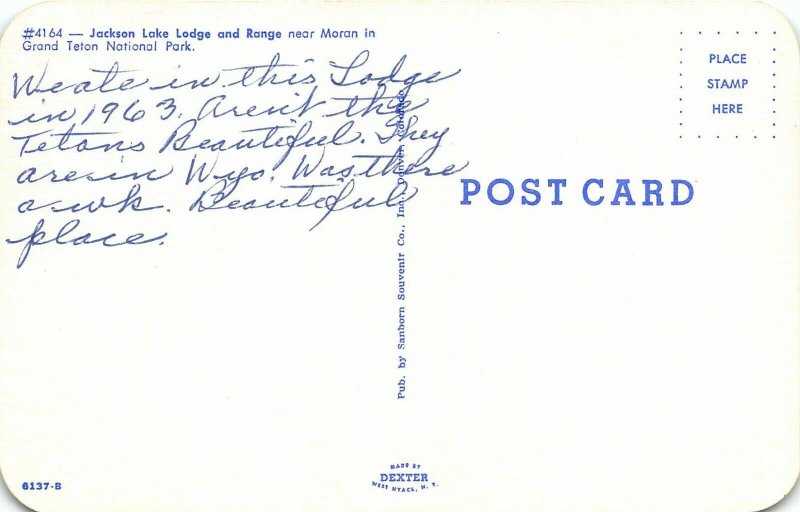 #4164 — Jackson Lake Lodge and Range near Moran in
Grand Teton National Park.
We ate in this Lodge
in 1963. Aren't the
Tetons Beautiful. They
are in Wyo. Was there
a wk. Beautiful
place.
Pub. by Sanborn Souvenir Co., Inc., Denver, Colorado
PLACE
STAMP
HERE
POST CARD
6137-B
MADE BY
DEXTER
WEST NYACK, N. Y.